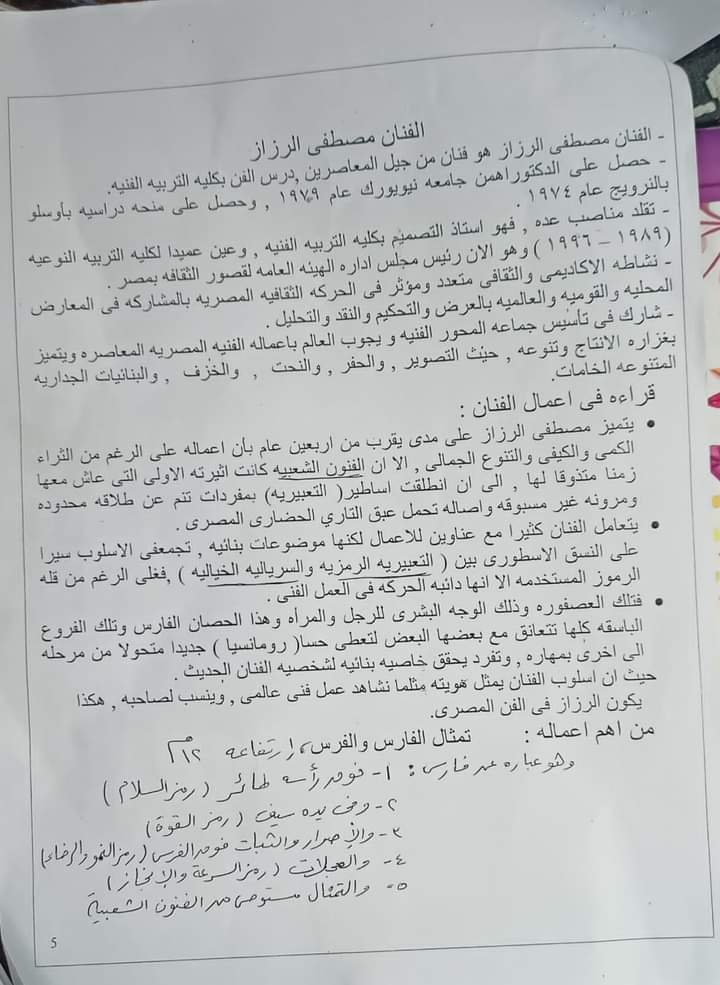 الفنان مصطفى الرزاز
- الفنان مصطفى الرزاز هو فنان من جيل المعاصرين ,درس الفن بكليه التربيه الفنيه.
- حصل على الدكتوراهمن جامعه نيويورك عام ١٩٧٩ , وحصل على منحه دراسيه بأوسلو
بالنرويج عام ١٩٧٤ .
- تقلد مناصب عده , فهو استاذ التصميم بكليه التربيه الفنيه , وعين عميدا لكليه التربيه النوعيه
(١٩٨٩ – ١٩٩٦) وهو الان رئيس مجلس اداره الهيئه العامه لقصور الثقافه بمصر .
- نشاطه الاكاديمى والثقافى متعدد ومؤثر فى الحركه الثقافيه المصريه بالمشاركه فى المعارض
المحليه والقوميه والعالميه بالعرض والتحكيم والنقد والتحليل .
- شارك فى تأسيس جماعه المحور الفنيه و يجوب العالم باعماله الفنيه المصريه المعاصره ويتميز
بغزاره الانتاج وتنوعه , حيث التصوير , والحفر , والنحت , والخزف , والبنائيات الجداريه
المتنوعه الخامات.
قراءه فى اعمال الفنان :
• يتميز مصطفى الرزاز على مدى يقرب من اربعين عام بأن اعماله على الرغم من الثراء
الكمى والكيفى والتنوع الجمالى , الا ان الفنون الشعبيه كانت اثيرته الاولى التى عاش معها
زمنا متذوقا لها , الى ان انطلقت اساطير( التعبيريه) بمفردات تنم عن طلاقه محدوده
ومرونه غير مسبوقه واصاله تحمل عبق التاري الحضارى المصرى .
• يتعامل الفنان كثيرا مع عناوين للاعمال لكنها موضوعات بنائيه , تجمعفى الاسلوب سيرا
على النسق الاسطورى بين ( التعبيريه الرمزيه والسرياليه الخياليه ) ,فعلى الرغم من قله
الرموز المستخدمه الا انها دائبه الحركه فى العمل الفنى .
• فتلك العصفوره وذلك الوجه البشرى للرجل والمرأه وهذا الحصان الفارس وتلك الفروع
الباسقه كلها تتعانق مع بعضها البعض لتعطى حسا( رومانسيا ) جديدا متحولا من مرحله
الى اخرى بمهاره , وتفرد يحقق خاصيه بنائيه لشخصيه الفنان الحديث .
حيث ان اسلوب الفنان يمثل هويته مثلما نشاهد عمل فنى عالمى , وينسب لصاحبه , هكذا
يكون الرزاز فى الفن المصرى.
من اهم اعماله : تمثال الفارس والفرس، ارتفاعه ١٢م
وهو عباره عن فارس: ١- فوق رأسه طائر (رمز السلام)
٢- وفى يده سيف (رمز القوة)
٣- والإصرار والثبات فوق الفرس (رمز النمو والرخاء)
٤- والعجلات (رمز السرعة والإنجاز)
٥- والتمثال مستوحى من الفنون الشعبية
5